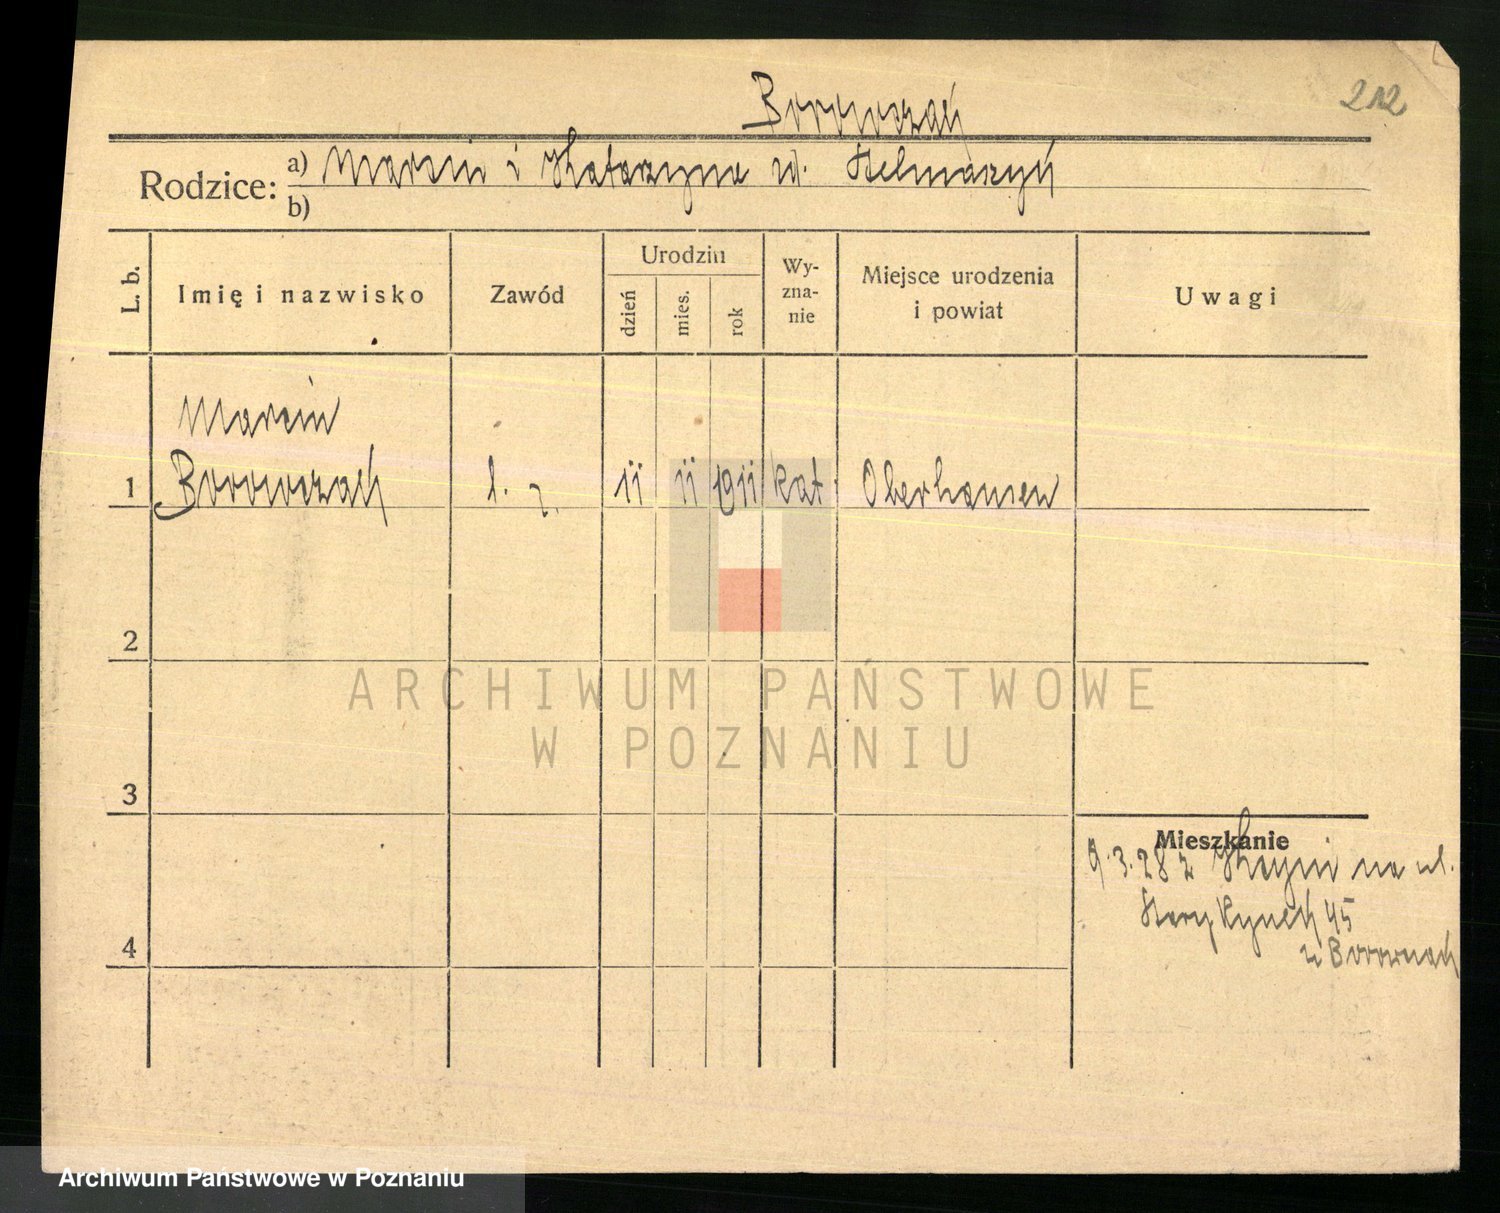 212
Borowczak
Rodzice: a) Marcin i Katarzyna ur. Helmaszyk
b)
L. b.
Imię i nazwisko
Zawód
Urodzin
dzień
mies.
rok
Wy-
zna-
nie
Miejsce urodzenia
i powiat
Uwagi
Marcin
1 Borowczak 11 11 1911 kat Oberhausen
2
3
4
Mieszkanie
9.3.28 z na ul.
Stary Rynek 45
ARCHIWUM PAŃSTWOWE
W POZNANIU
Archiwum Państwowe w Poznaniu